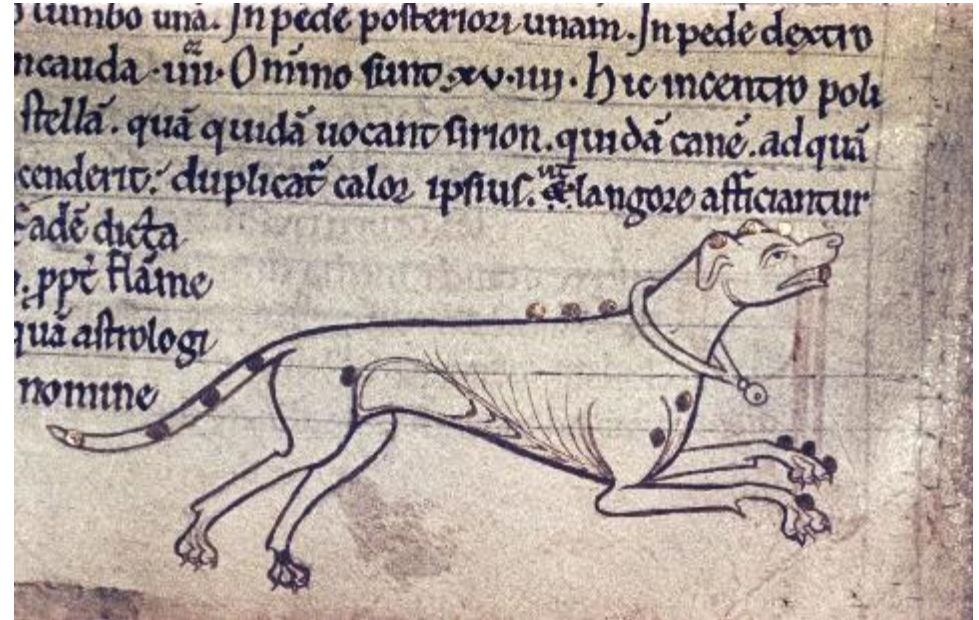 lumbo unā. In pede posteriori unam. In pede dextro
in cauda .iiii. Omīno sunt .xv.iiii. hic in centro poli
stellā. quā quidā uocant sirion. quidā canē. ad quā
cenderit; duplicat᷑ calor ipsius. ut langore afficiantur
eadē dicta
ꝓpt̄ flāme
quā astrologi
nomine